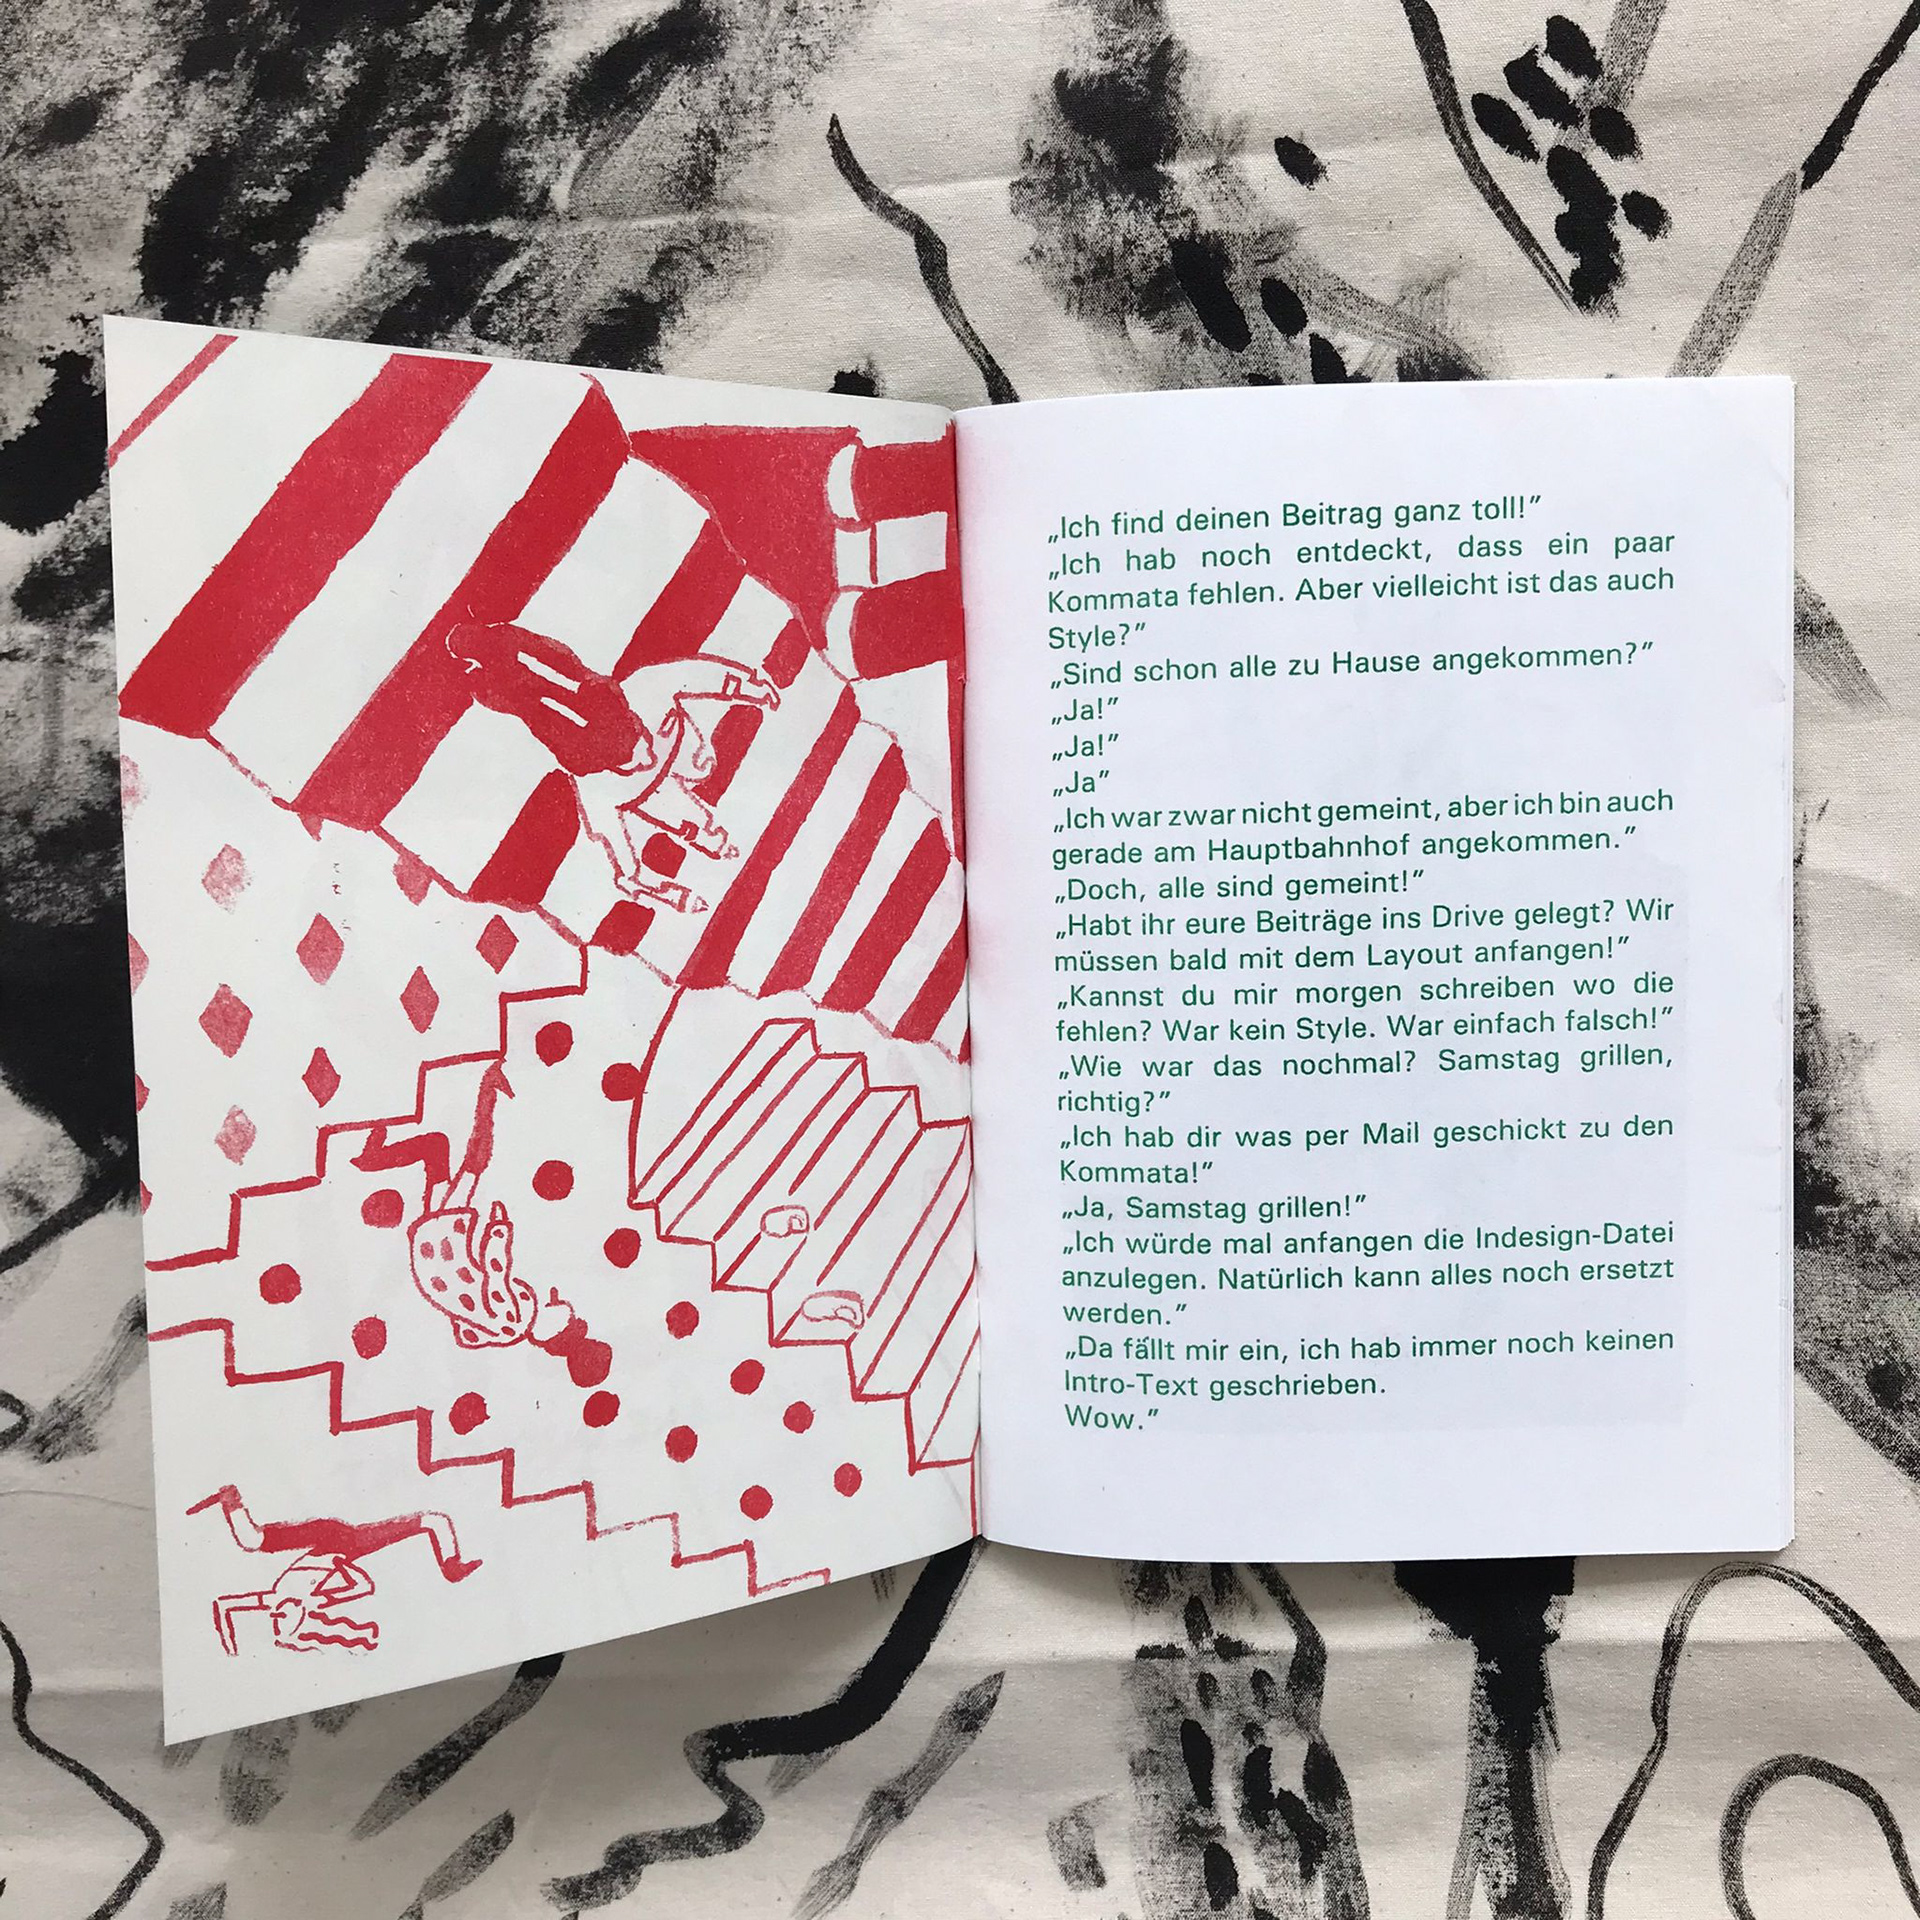 „Ich find deinen Beitrag ganz toll!”
„Ich hab noch entdeckt, dass ein paar
Kommata fehlen. Aber vielleicht ist das auch
Style?”
„Sind schon alle zu Hause angekommen?”
„Ja!”
„Ja!”
„Ja”
„Ich war zwar nicht gemeint, aber ich bin auch
gerade am Hauptbahnhof angekommen.”
„Doch, alle sind gemeint!”
„Habt ihr eure Beiträge ins Drive gelegt? Wir
müssen bald mit dem Layout anfangen!”
„Kannst du mir morgen schreiben wo die
fehlen? War kein Style. War einfach falsch!”
„Wie war das nochmal? Samstag grillen,
richtig?”
„Ich hab dir was per Mail geschickt zu den
Kommata!”
„Ja, Samstag grillen!”
„Ich würde mal anfangen die Indesign-Datei
anzulegen. Natürlich kann alles noch ersetzt
werden.”
„Da fällt mir ein, ich hab immer noch keinen
Intro-Text geschrieben.
Wow.”